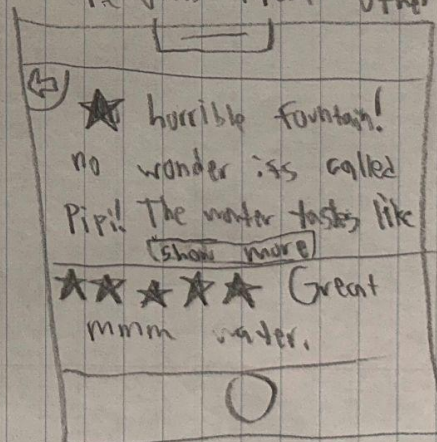 ★ horrible fountain!
no wonder its called
Pipi! The water tastes like
(show more)
★★★★★ Great
mmm water.